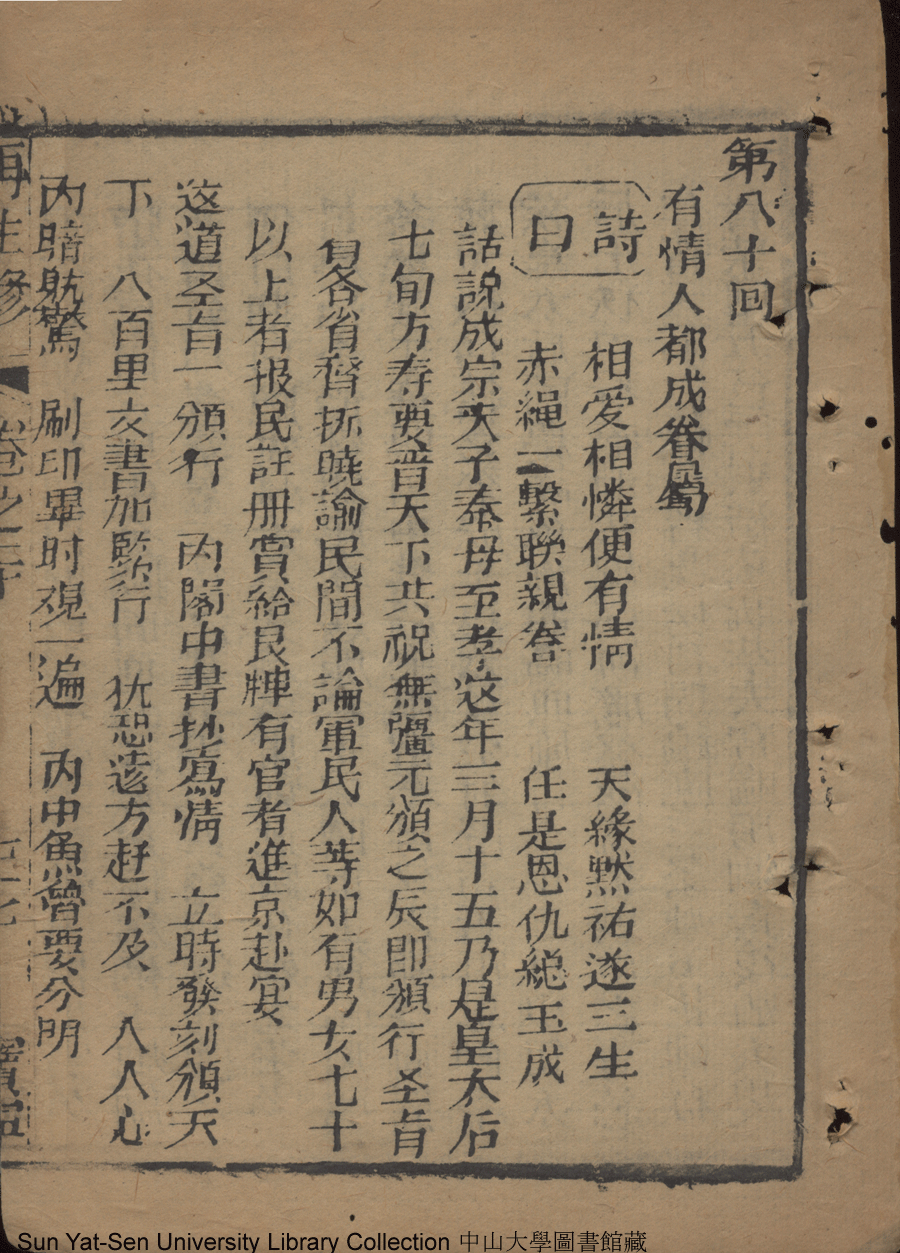 第八十回
有情人都成眷屬
詩曰
相愛相憐便有情　天緣默祐遂三生
赤繩一繫聯親眷　任是恩仇總玉成
話説成宗天子奉母至孝这年三月十五乃是皇太后
七旬方寿要普天下共祝無疆元頒之辰即頒行圣旨
着各省督折曉諭民間不論軍民人等如有男女七十
以上者报民註冊賞給民牌有官者進京赴宴
这道圣旨一頒行　内閣中書抄寫情　立時發刻頒天
下　八百里文書加緊行　犹恐遠方赶不及　人人心
内暗躭驚　刷印畢时观一遍　内中魚魯要分明
再生缘　卷之二十
寶
Sun Yat-Sen University Library Collection 中山大學圖書館藏